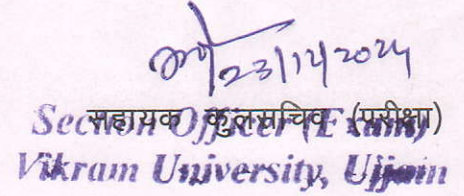 23/12/2024
सहायक कुलसचिव (परीक्षा)
Section Officer (Exam)
Vikram University, Ujjain